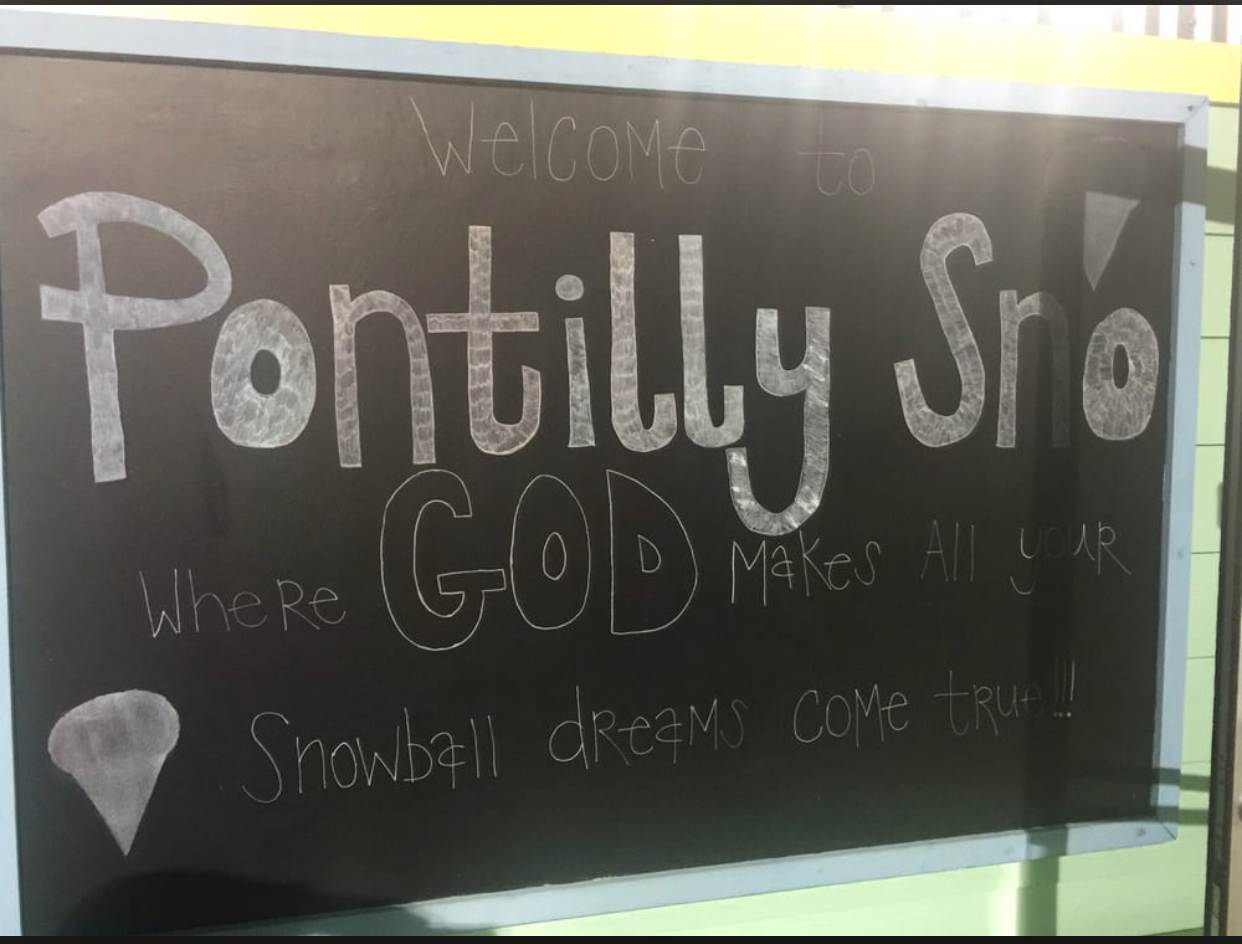 Welcome to
Pontilly Sno
Where GOD Makes All your
Snowball dreams come true!!!